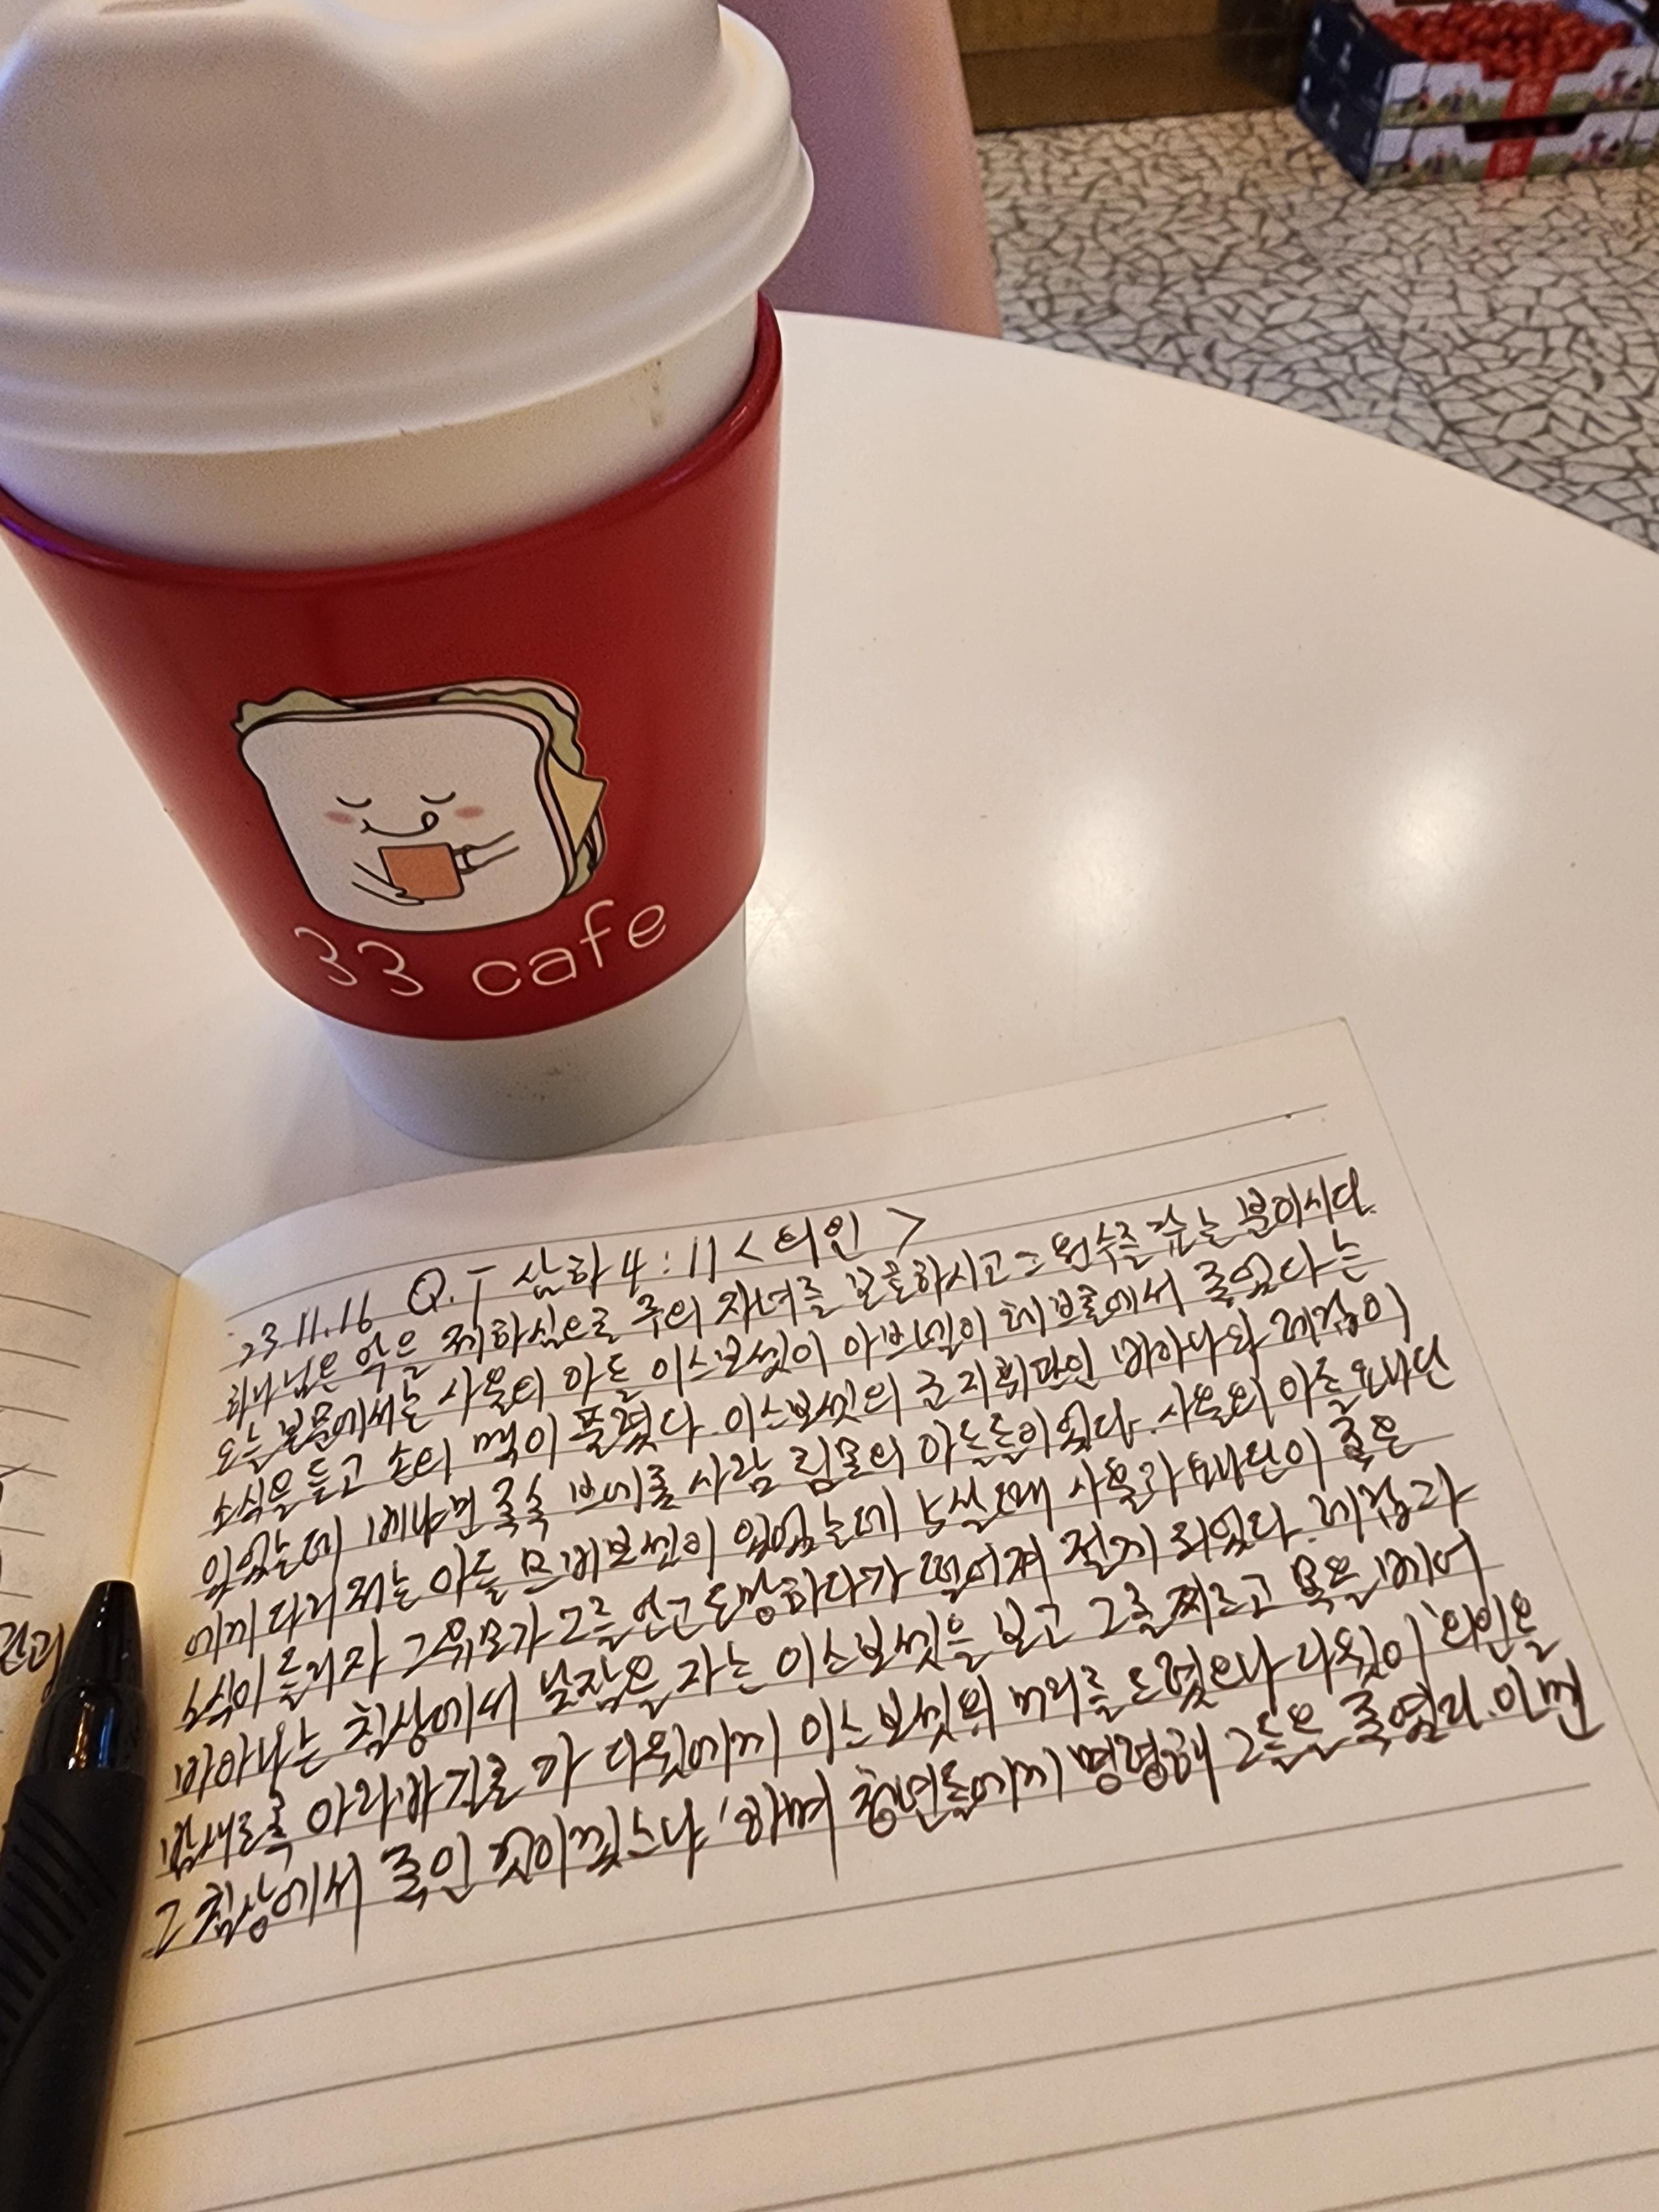 33 cafe
23.11.16 Q.T 삼하 4:11 <의인>
하나님은 악을 제하심으로 주의 자녀를 보호하시고 그 원수를 갚는 분이시다.
오늘 본문에서는 사울의 아들 이스보셋이 아브넬이 헤브론에서 죽었다는
소식을 듣고 손의 맥이 풀렸다. 이스보셋의 군지휘관인 바아나와 레갑이
있었는데 베냐민 족속 브에롯 사람 림몬의 아들들이었다. 사울의 아들 요나단
에게 다리 저는 아들 므비보셋이 있었는데 5살 때 사울과 요나단이 죽은
소식이 들리자 그 유모가 그를 안고 도망하다가 떨어져 절게 되었다. 레갑과
바아나는 침상에서 낮잠을 자는 이스보셋을 보고 그를 찌르고 목을 베어
밤새도록 아라바 길로 가 다윗에게 이스보셋의 머리를 드렸으나 다윗이 '의인을
그 침상에서 죽인 것이겠느냐' 하며 청년들에게 명령해 그들은 죽였다. 아멘